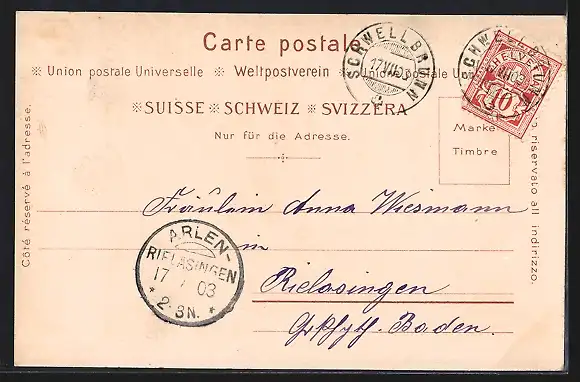 Carte postale
※ Union postale Universelle ※ Weltpostverein ※ Unione postale
※ SUISSE ※ SCHWEIZ ※ SVIZZERA
Nur für die Adresse.
Côté réservé à l'adresse.
riservato all indirizzo.
Marke
Timbre
SCHWELLBRUNN
17 VII 03
HELVETIA
10
Fräulein Anna Wiesmann
in
Rielasingen
Baden.
ARLEN-
RIELASINGEN
17 7 03
* 2-3N. *